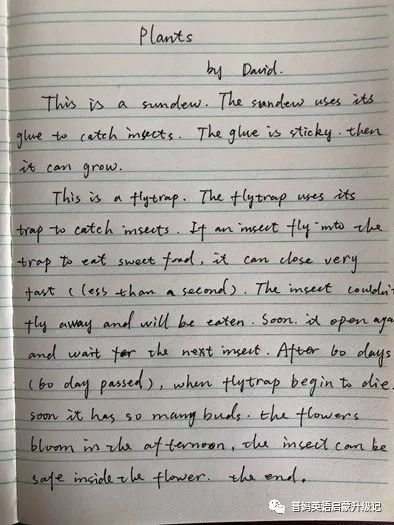 Plants
by David.
This is a sundew. The sundew uses its
glue to catch insects. The glue is sticky. then
it can grow.
This is a flytrap. The flytrap uses its
trap to catch insects. If an insect fly into the
trap to eat sweet food, it can close very
fast (less than a second). The insect couldn't
fly away and will be eaten. Soon. it open aga
and wait for the next insect. After 60 days
(60 day passed), when flytrap begin to die.
soon it has so many buds. the flowers
bloom in the afternoon, the insect can be
safe inside the flower. the end.
昔妈英语启蒙升级记